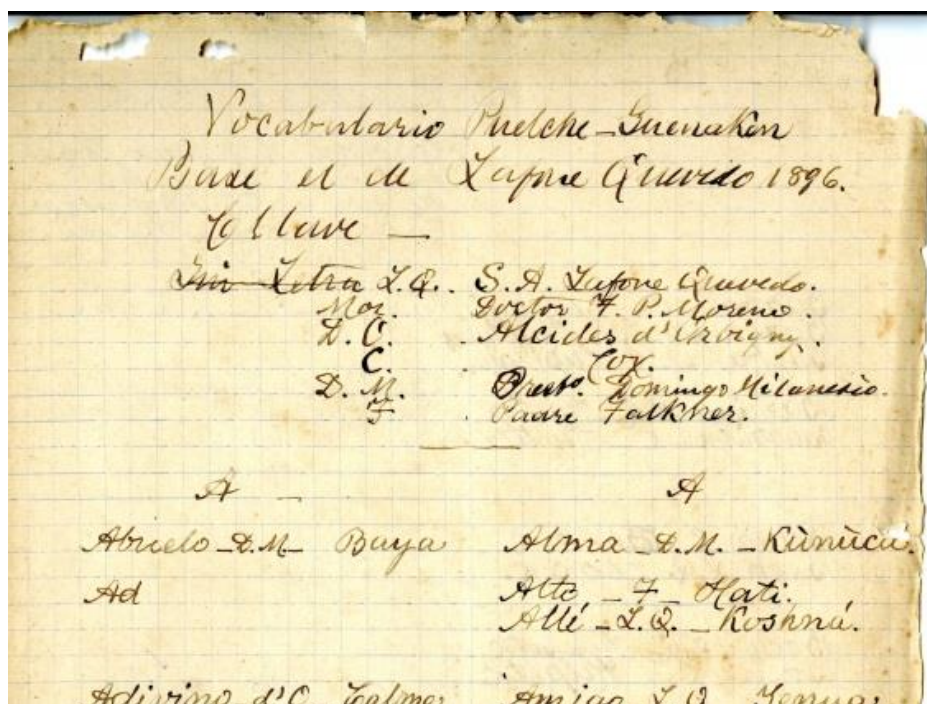 Vocabulario Puelche-Guenaken
Base el de Lafone Quevedo 1896.
Cl llave —
Sin Letra L.Q. . S. A. Lafone Quevedo.
Mor. Doctor F. P. Moreno.
D. O. . Alcides d'Orbigny.
C. . Cox.
D. M. Presbº. Domingo Milanesio.
F . Padre Falkner.
A —
Abuelo - D.M - Baya
Ad
Adivino d'O.
A
Alma - D.M. - Kùnùcù.
Alto - F - Hati.
Allé - L.Q. - Koshná.
Amigo L Q